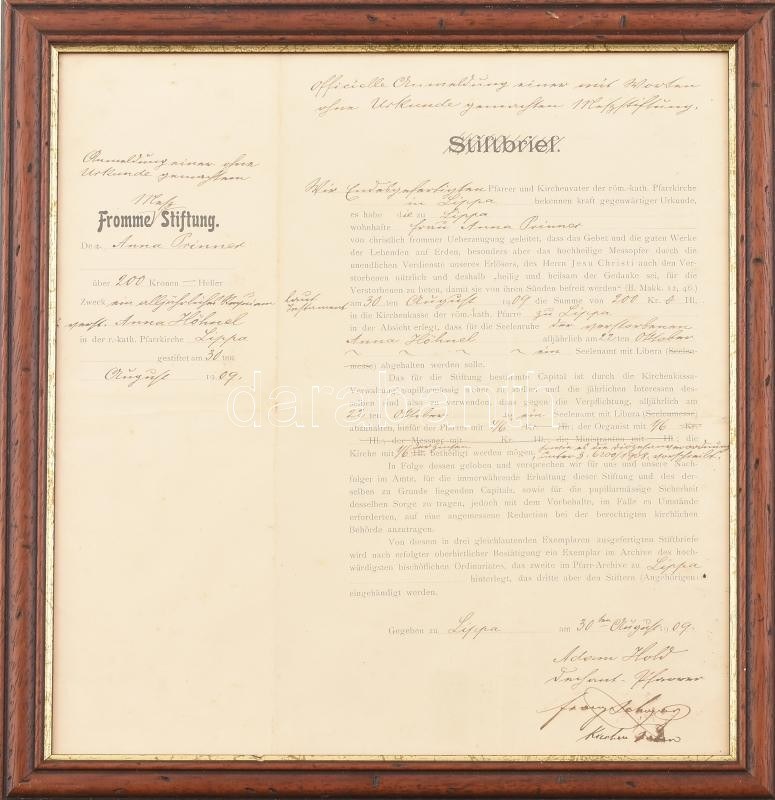 Anmeldung einer ohne
Urkunde gemachtem
Mess
Fromme Stiftung.
De r Anna Prinner
über 200 Kronen — Heller
Zweck ein alljährliches
verst. Anna Höhnel
in der r.-kath. Pfarrkirche Lippa
gestiftet am 30 ten
August 1909.
Officielle Anmeldung einer mit Worten
ohne Urkunde gemachten Messstiftung.
Stiftbrief.
Wir Endesgefertigten Pfarrer und Kirchenvater der röm.-kath. Pfarrkirche
in Lippa bekennen kraft gegenwärtiger Urkunde,
es habe die zu Lippa
wohnhafte Frau Anna Prinner
von christlich frommer Ueberzeugung geleitet, dass das Gebet und die guten Werke
der Lebenden auf Erden, besonders aber das hochheilige Messopfer durch die
unendlichen Verdienste unseres Erlösers, des Herrn Jesu Christi auch den Ver-
storbenen nützlich und deshalb „heilig und heilsam der Gedanke sei, für die
Verstorbenen zu beten, damit sie von ihren Sünden befreit werden" (II. Makk. 12, 46.)
laut Testament am 30 ten August 1909 die Summe von 200 Kr. Hl.
in die Kirchenkasse der röm.-kath. Pfarre zu Lippa
in der Absicht erlegt, dass für die Seelenruhe der verstorbenen
Anna Höhnel alljährlich am 22 ten Oktober
ein Seelenamt mit Libera (Seels-
messe) abgehalten werden solle.
Das für die Stiftung bestimmte Capital ist durch die Kirchenkassa-
Verwaltung pupillarmässig sicher zu und die jährlichen Interessen des-
selben sind also zu verwenden, dass gegen die Verpflichtung, alljährlich am
22 ten Oktober ein Seelenamt mit Libera (Seelenmesse)
abzuhalten, hiefür der Pfarrer mit Kr. Hl. der Organist mit Kr.
Hl.; der Messner mit Kr. Hl., die Ministranten mit Hl.; die
Kirche mit Hl. betheiligt werden mögen,
unter 6200/1908. vorschreibt.
In Folge dessen geloben und versprechen wir für uns und unsere Nach-
folger im Amte, für die immerwährende Erhaltung dieser Stiftung und des der-
selben zu Grunde liegenden Capitals, sowie für die pupillarmässige Sicherheit
desselben Sorge zu tragen, jedoch mit dem Vorbehalte, im Falle es Umstände
erforderten, auf eine angemessene Reduction bei der berechtigten kirchlichen
Behörde anzutragen.
Von diesem in drei gleichlautenden Exemplaren ausgefertigten Stiftbriefe
wird nach erfolgter oberhirtlicher Bestätigung ein Exemplar im Archive des hoch-
würdigsten bischöflichen Ordinariates, das zweite im Pfarr-Archive zu Lippa
hinterlegt, das dritte aber den Stiftern (Angehörigen)
eingehändigt werden.
Gegeben zu Lippa am 30 ten August 1909.
Adam Hold
Dechant-Pfarrer
Kirchen
darabanth